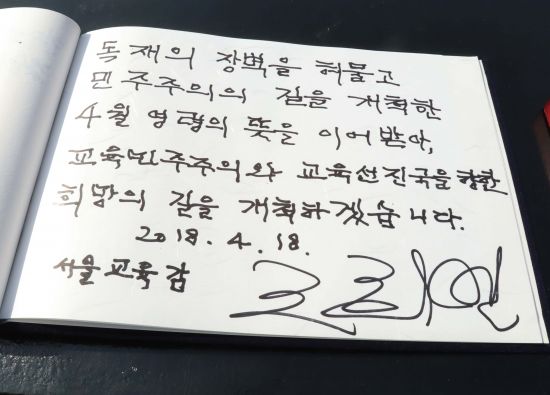 독재의 장벽을 허물고
민주주의의 길을 개척한
4월 영령의 뜻을 이어받아,
교육민주주의와 교육선진국을 향한
희망의 길을 개척하겠습니다.
2018. 4. 18.
서울교육감 조희연